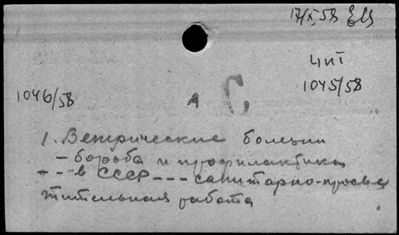 17/X.58
ЧПІ
1046/58
1045/58
С
1. Венерические болезни
— борьба и профилактика
— — в СССР — — — санитарно-просве
тительная работа